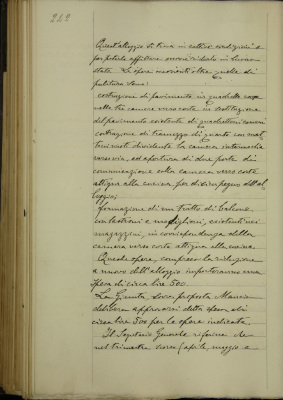 242
Quest'alloggio si trova in cattive condizioni e
per poterlo affittare occorre ridurlo in buono
stato. Le opere occorrenti oltre quelle di
pulitura sono:
costruzione di pavimento in quadrelle
nelle tre camere verso corte in sostituzione
del pavimento esistente di quadrettoni comuni
costruzione di tramezzo di quarto con mat
toni vuoti dividente la camera
verso via, ed apertura di due porte di
comunicazione colla camera verso corte
attigua alla cucina, per disimpegno dell'al
loggio;
formazione di un tratto di balcone,
con lastroni e modiglioni, esistenti nei
magazzini, in corrispondenza della
camera verso corte attigua alla cucina.
Queste opere, compreso la riduzione
a nuovo dell'alloggio importeranno una
spesa di circa lire 500.
La Giunta su proposta Mancio
delibera approvarsi detta spesa di
circa lire 500 per le opere indicate.
Il Segretario Generale riferisce che
nel trimestre scorso (aprile, maggio e